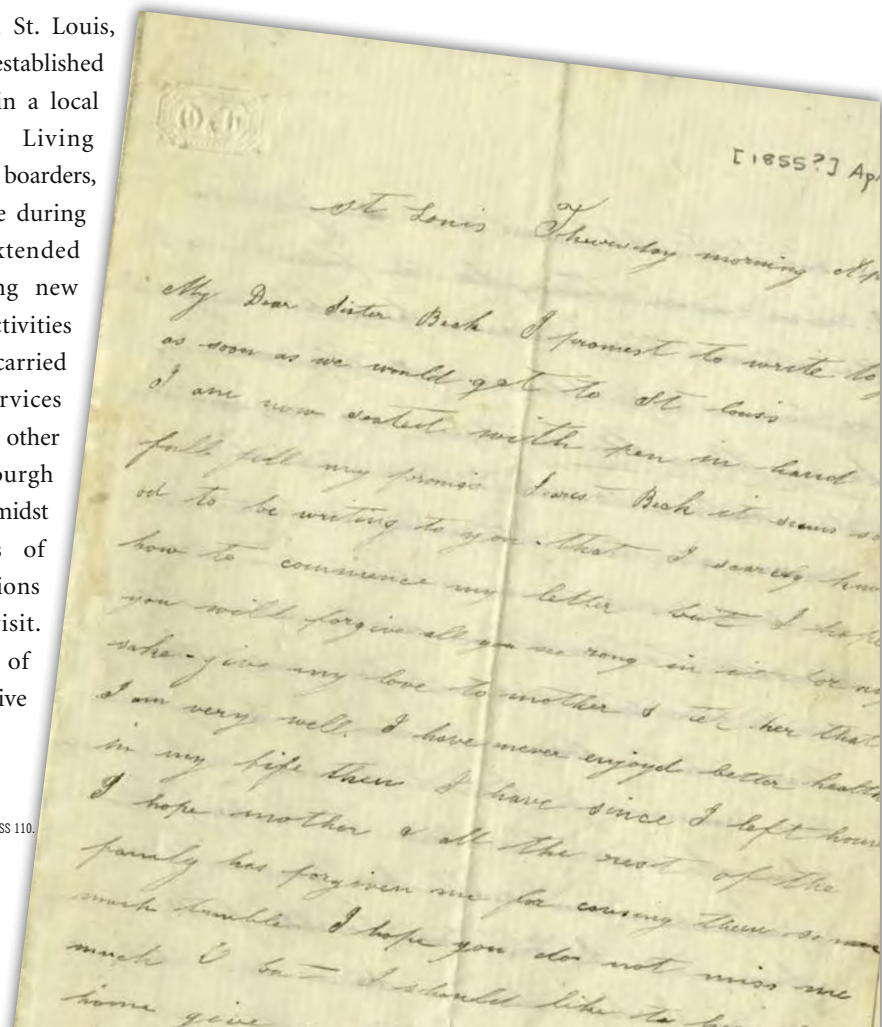 St. Louis,
established
in a local
Living
boarders,
e during
xtended
ng new
ctivities
carried
rvices
other
ourgh
midst
s of
ions
visit.
of
ive
SS 110.
[1855?] Apr
St Louis Thewrsday morning Ap
My Dear Sister Beck I promest to write to y
as soon as we would get to St louis
I am now seated with pen in hand
full fill my promis Dearest Beck it seems so
od to be writing to you that I scarcely know
how to commence my letter but I hope
you will forgive all you se rong in it for my
sake - give my love to mother & tel her that
I am very well. I have never enjoyd better health
in my life then I have since I left hom
I hope mother & all the rest of the
family has forgiven me for cousing them so
much trouble I hope you do not miss me
much I should like to
home give